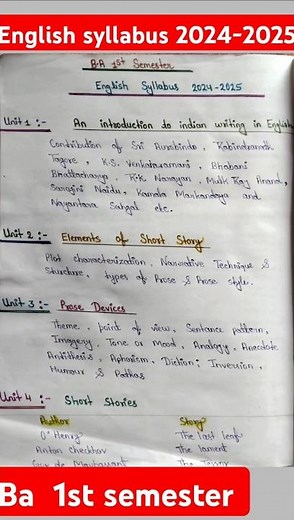 English syllabus 2024-2025
B.A 1st Semester
English Syllabus 2024-2025
Unit 1 :- An introduction to indian writing in English
Contribution of Sri Aurobindo, Rabindranath
Tagore, K.S. Venkataramani, Bhabani
Bhattacharya, R.K. Narayan, Mulk Raj Anand,
Sarojini Naidu, Kamala Markandaya and
Nayantara Sahgal etc.
Unit 2 :- Elements of Short Story
Plot characterization, Narrative Technique &
Structure, types of Prose & Prose style.
Unit 3 :- Prose Devices
Theme, point of view, Sentance pattern,
Imagery, Tone or Mood, Analogy, Anecdote
Antithesis, Aphorism, Diction; Inversion,
Humour & Pathos
Unit 4 :- Short Stories
Author Story
O' Henry The last leaf
Anton checkhov The lament
Guy de Maupassant The Terror
Ba 1st semester